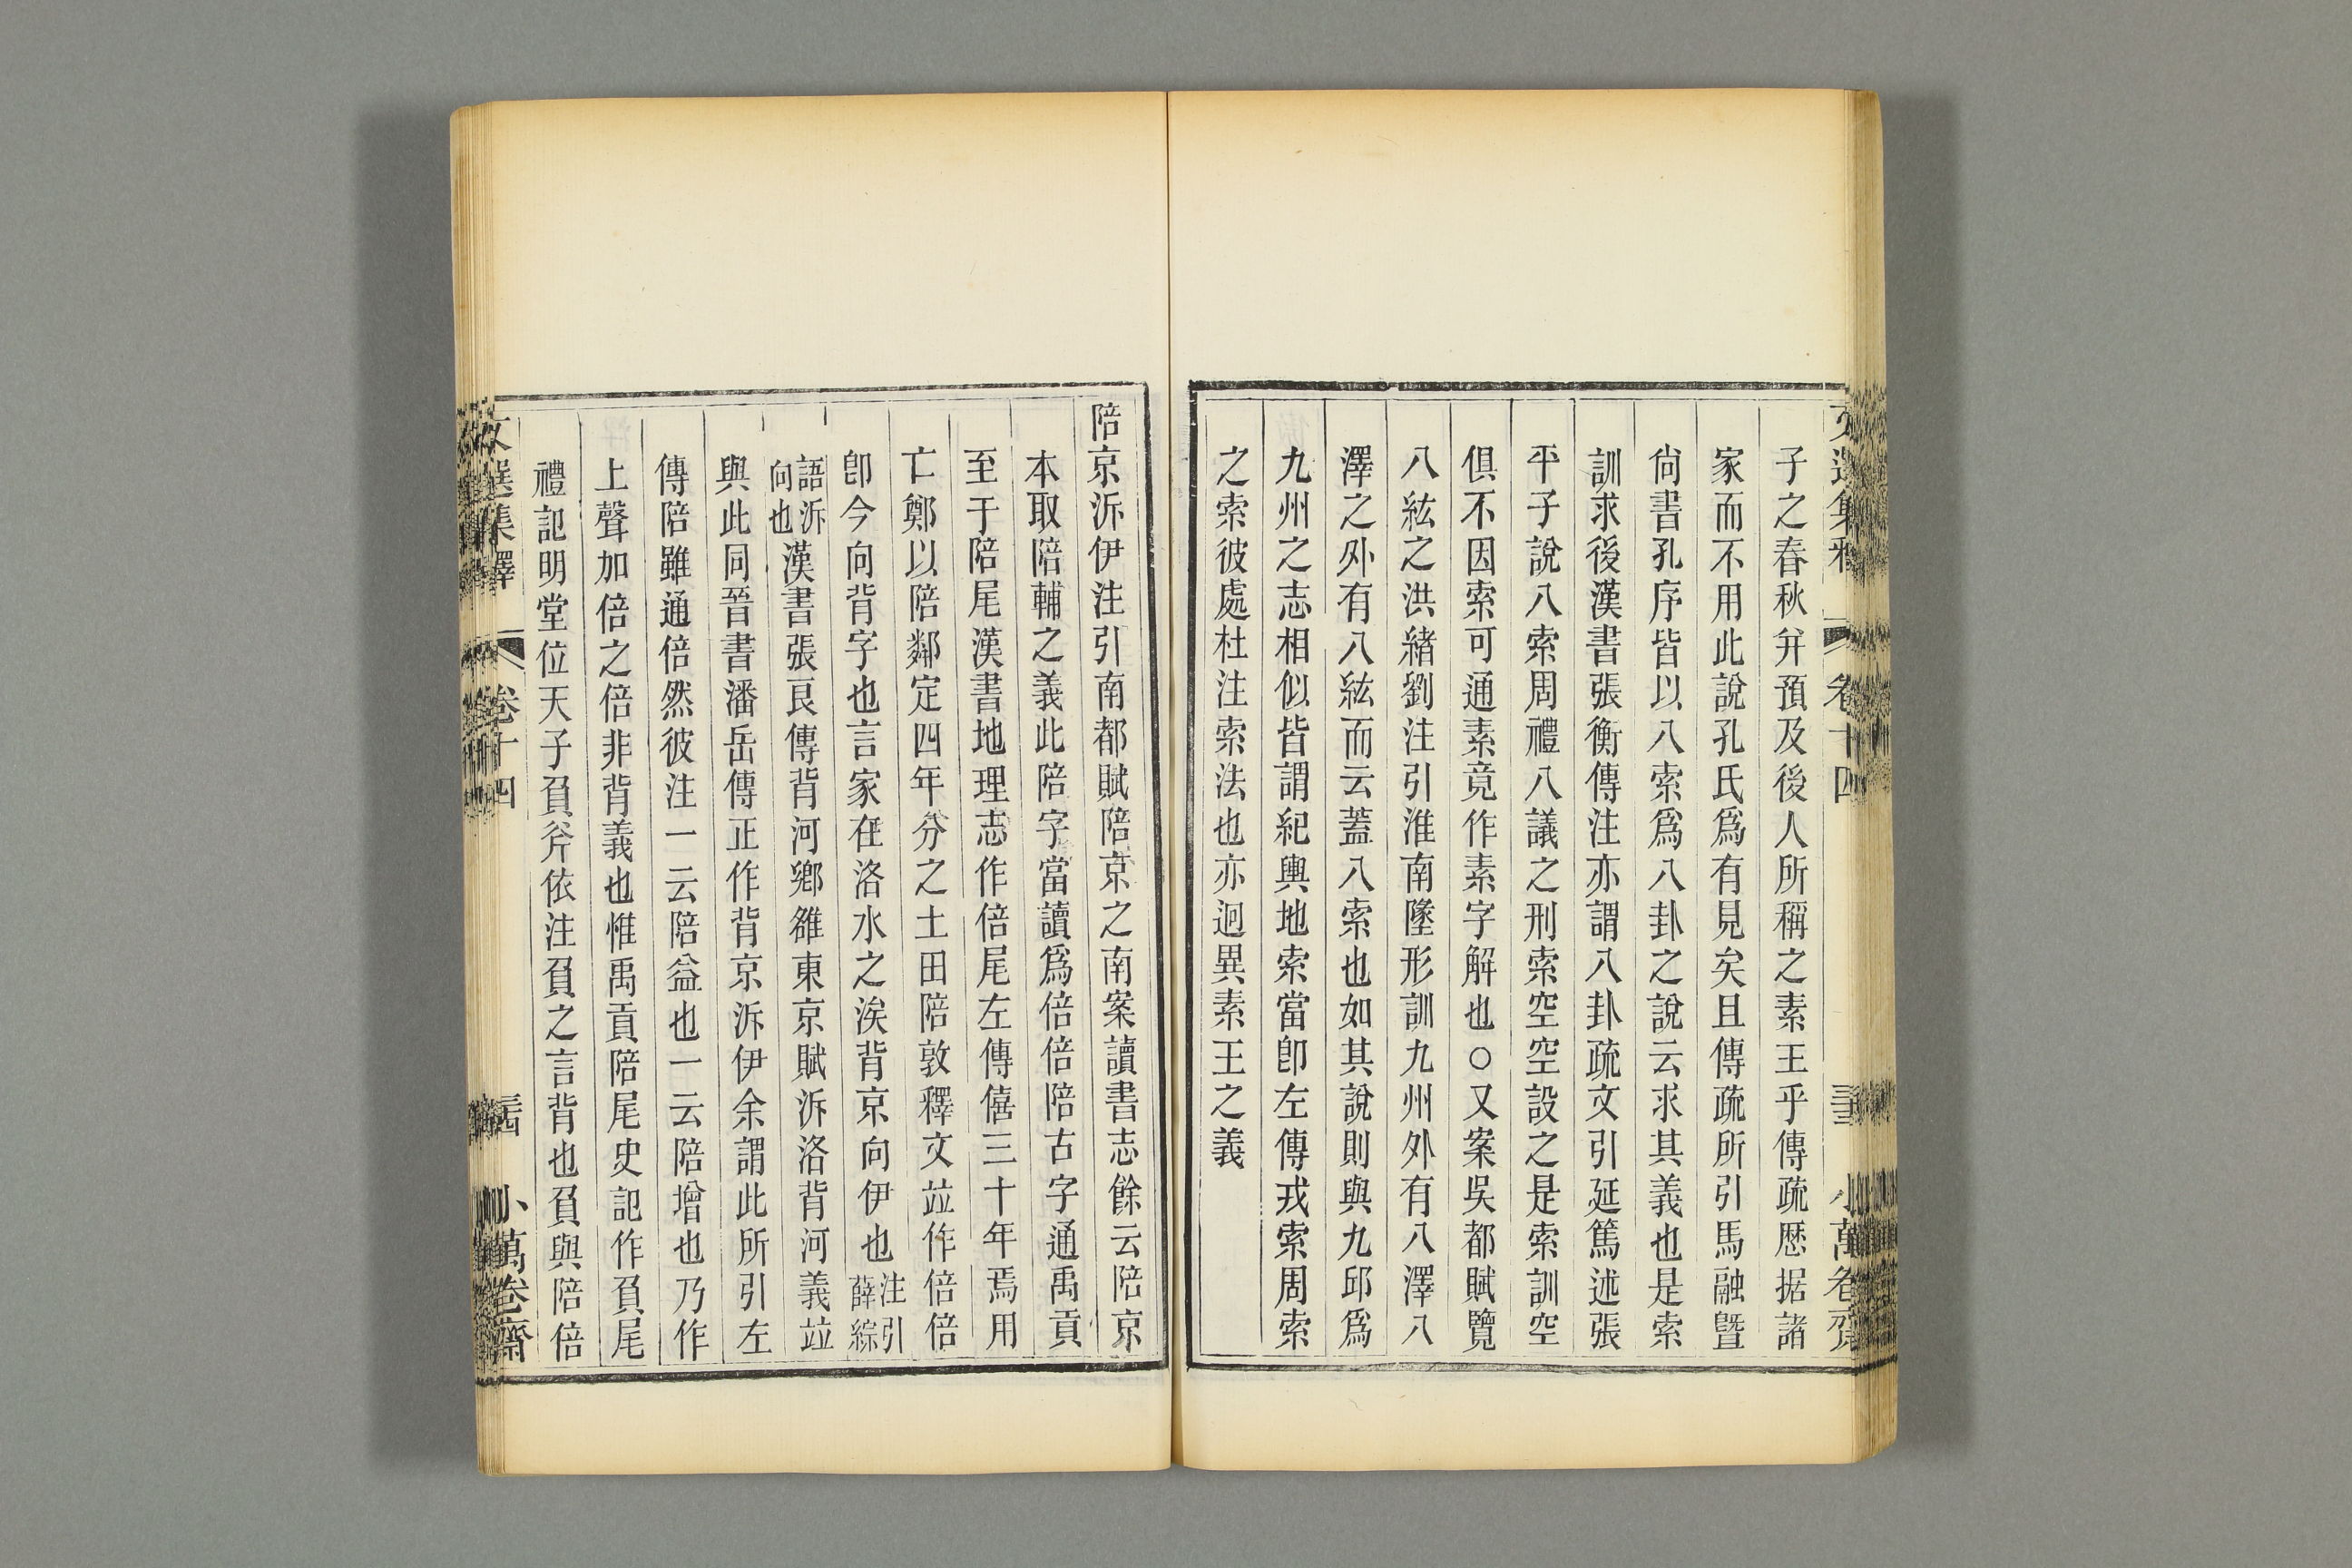 子之春秋并預及後人所稱之素王乎傳疏歷据諸
家而不用此說孔氏爲有見矣且傳疏所引馬融曁
尙書孔序皆以八索爲八卦之說云求其義也是索
訓求後漢書張衡傳注亦謂八卦疏文引延篤述張
平子說八索周禮八議之刑索空空設之是索訓空
俱不因索可通素竟作素字解也○又案吳都賦覽
八紘之洪緒劉注引淮南墬形訓九州外有八澤八
澤之外有八紘而云蓋八索也如其說則與九邱爲
九州之志相似皆謂紀輿地索當卽左傳戎索周索
之索彼處杜注索法也亦迥異素王之義
陪京泝伊注引南都賦陪京之南案讀書志餘云陪京
本取陪輔之義此陪字當讀爲倍倍陪古字通禹貢
至于陪尾漢書地理志作倍尾左傳僖三十年焉用
亡鄭以陪鄰定四年分之土田陪敦釋文竝作倍倍
卽今向背字也言家在洛水之涘背京向伊也注引薛綜
語泝向也漢書張良傳背河鄉雒東京賦泝洛背河義竝
與此同晉書潘岳傳正作背京泝伊余謂此所引左
傳陪雖通倍然彼注一云陪益也一云陪增也乃作
上聲加倍之倍非背義也惟禹貢陪尾史記作負尾
禮記明堂位天子負斧依注負之言背也負與陪倍
文選集釋 卷十四 小萬卷齋